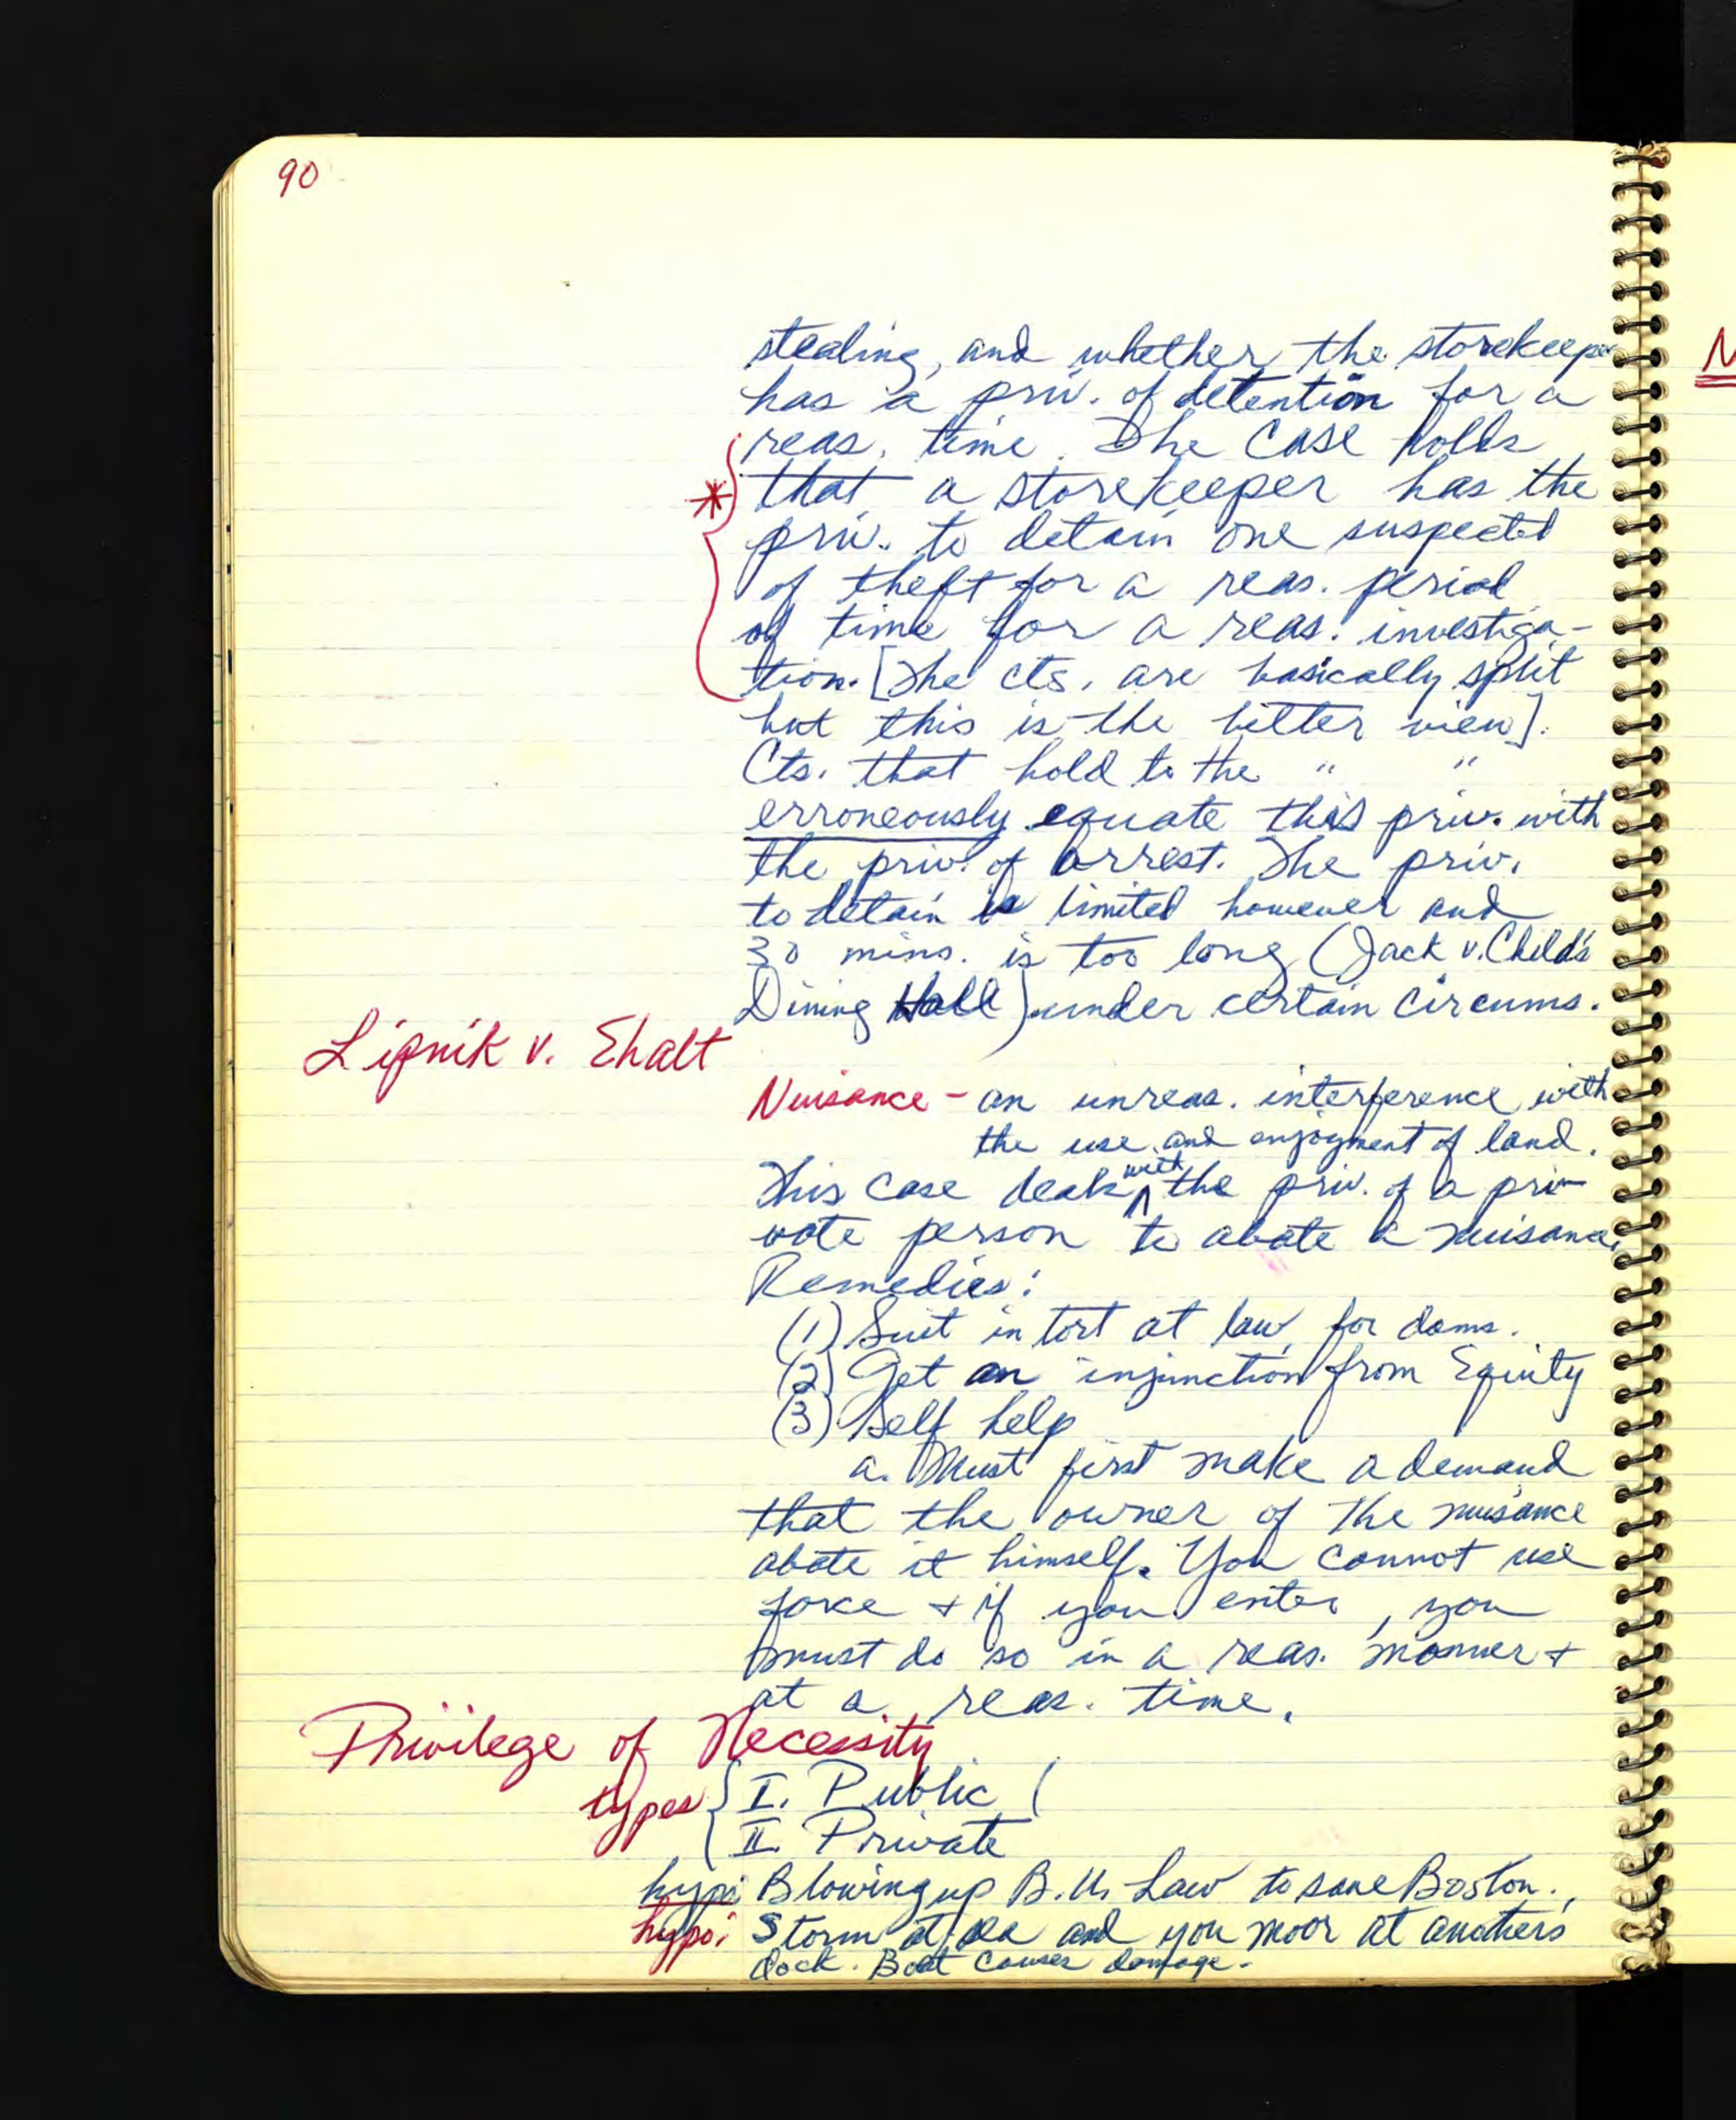 90
stealing, and whether the storekeeper
has a priv. of detention for a
reas. time. The case holds
* that a storekeeper has the
priv. to detain one suspected
of theft for a reas. period
of time for a reas. investiga-
tion. [The cts. are basically split
but this is the better view].
Cts. that hold to the " "
erroneously equate this priv. with
the priv. of arrest. The priv.
to detain is limited however and
30 mins. is too long (Jack v. Child's
Dining Hall) under certain circums.
Lipnik v. Ehalt
Nuisance - an unreas. interference with
the use and enjoyment of land.
This case deals with the priv. of a pri-
vate person to abate a nuisance.
Remedies:
(1) Suit in tort at law for dams.
(2) Get an injunction from Equity
(3) Self help
a. Must first make a demand
that the owner of the nuisance
abate it himself. You cannot use
force + if you enter, you
must do so in a reas. manner +
at a reas. time.
Privilege of Necessity
types { I. Public (
II. Private
hypo: Blowing up B.U. Law to save Boston.
hypo: Storm at sea and you moor at another's
dock. Boat causes damage.
N